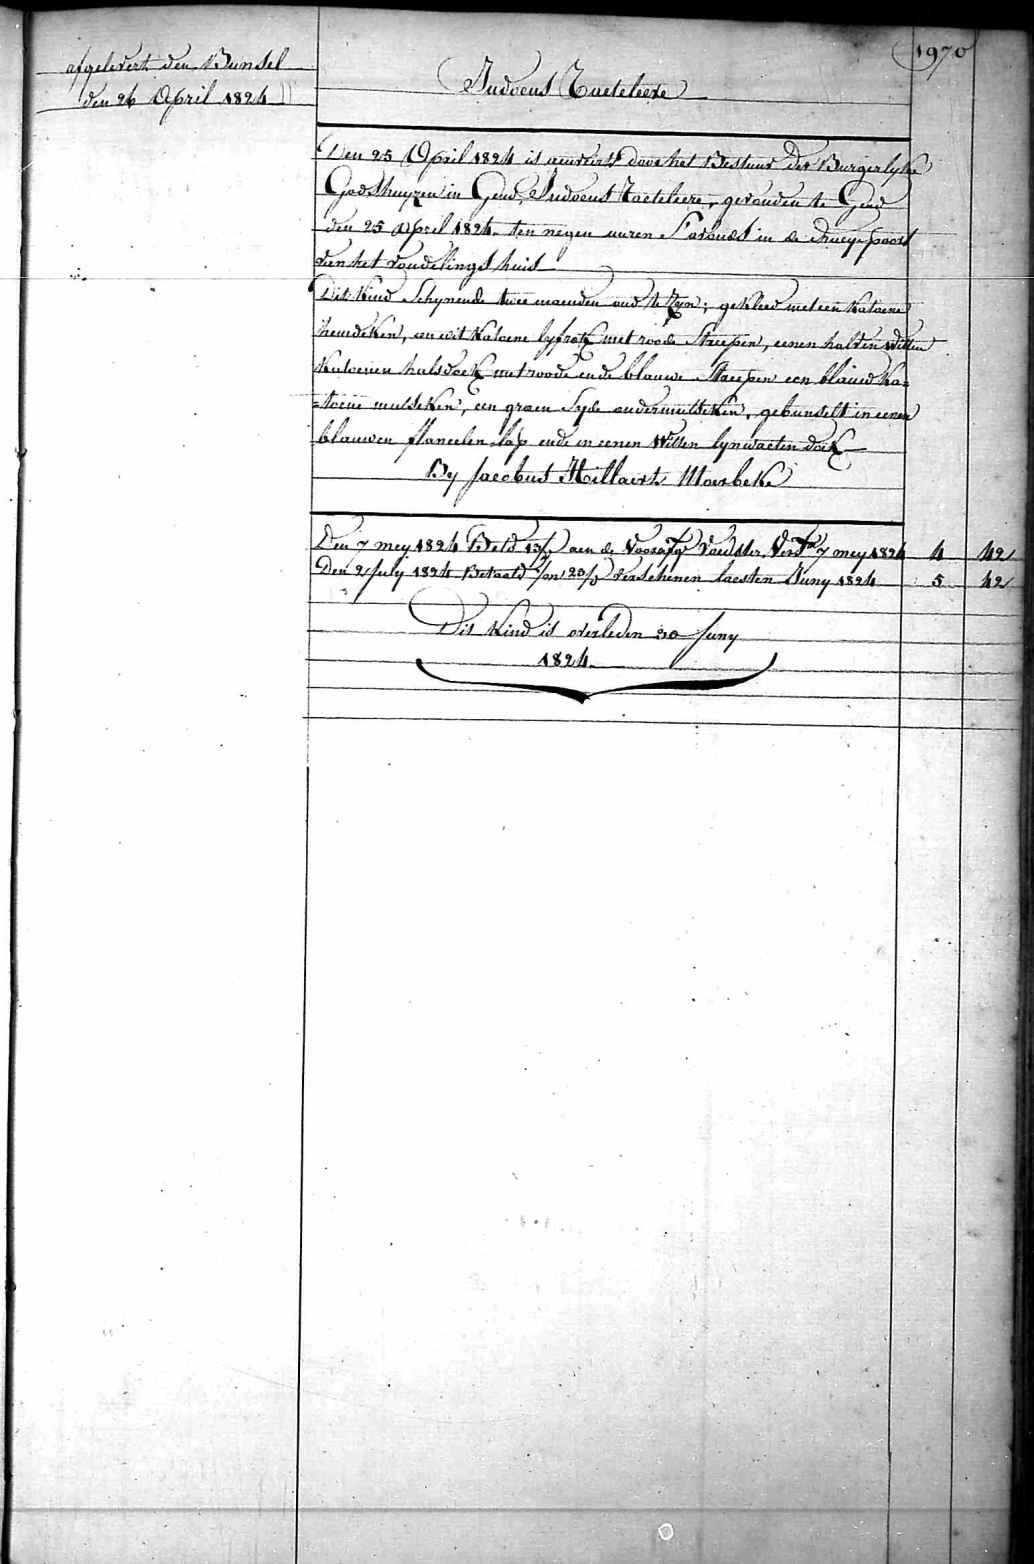 1970
afgelevert den Bunsel
den 26 April 1824
Judocus Taeteleere
Den 25 April 1824 is aenveirt door het Bestuur der Burgerlyke
Godshuyzen in Gend, Judocus Taeteleere, gevonden te Gend
den 25 april 1824 ten negen uuren s'avonds in de draeyepoort
van het vondelings huis
Dit Kind Schynende twee maenden oud te Zyn; gekleed met een Katoene
hemdeken, een wit Katoene lyfrok met roode Streepen, eenen halven Witten
Katoenen halsdoek met roode ende blauwe Streepen een blauw Ka=
=toene mutseken, een groen Syde ondermutseken, gebunselt in eenen
blauwen flaneelen lap ende in eenen Witten lynwaeten doek
By Jacobus Hillaert Moerbeke
Den 7 mey 1824 Betd 13/ aen de Voedster Versn 7 mey 1824 4 42
Den 2 July 1824 Betaeld verschenen laesten Juny 1824 5 42
Dit Kind is overleden 30 Juny
1824